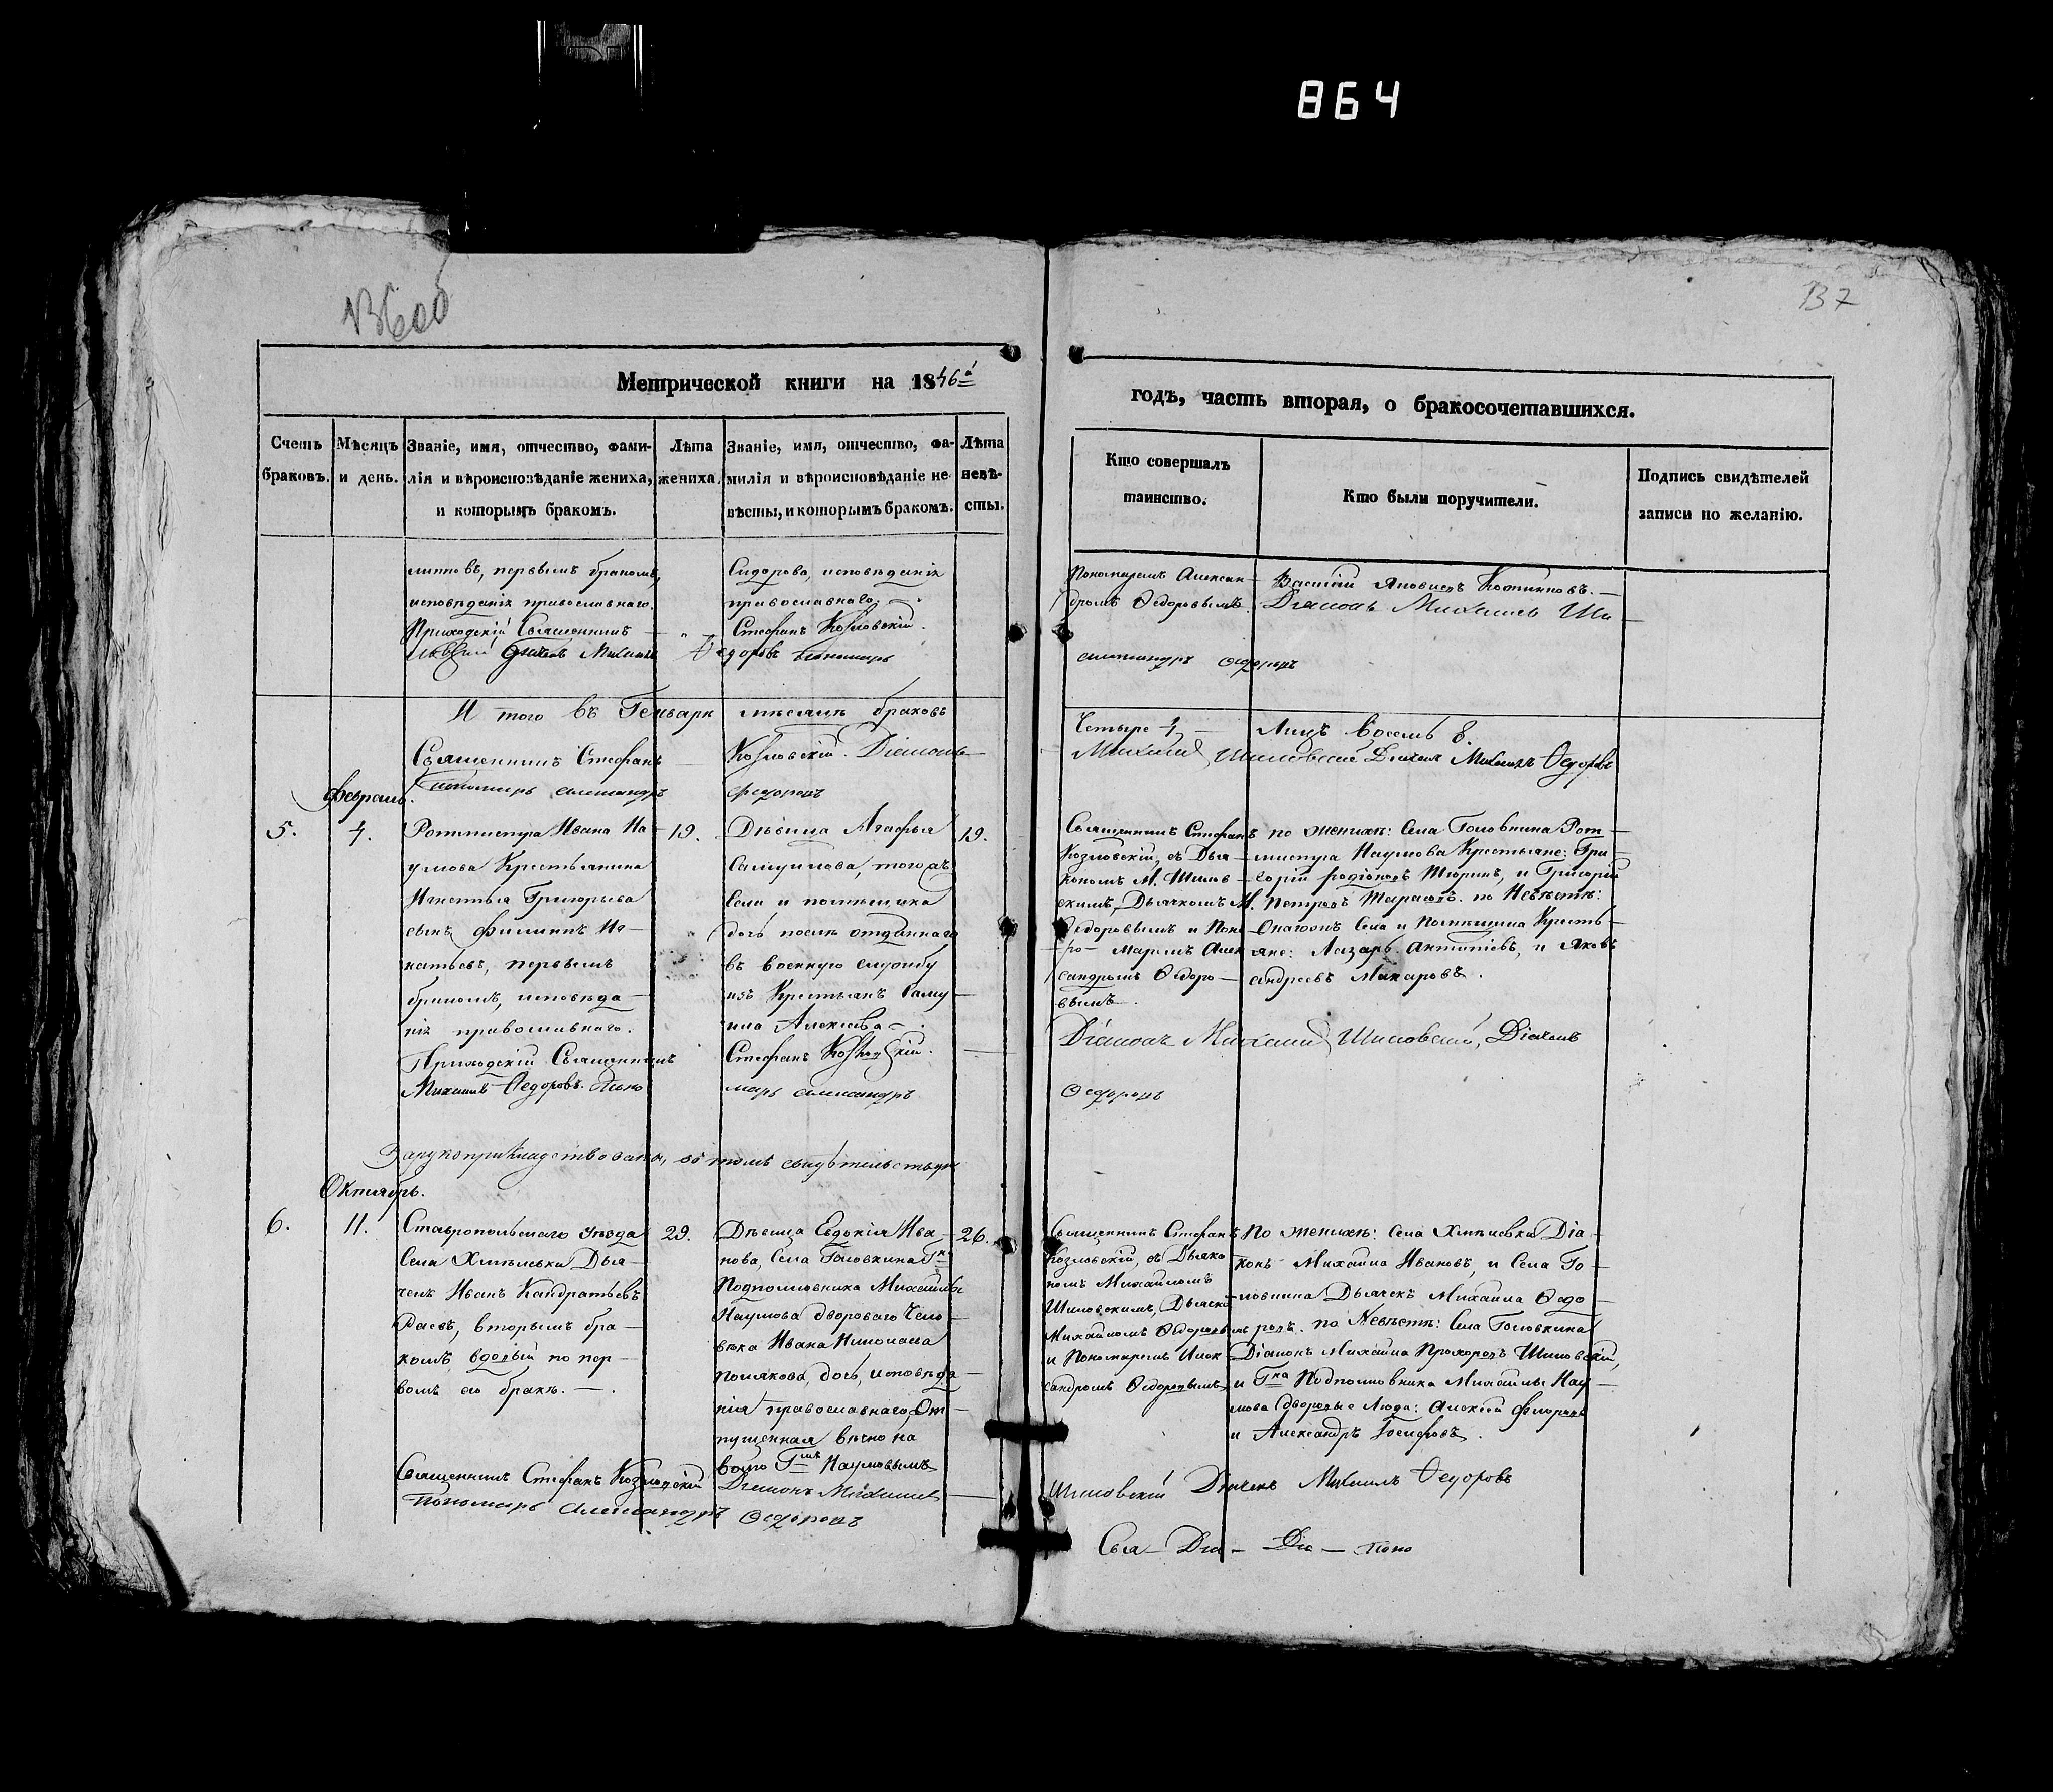 864
137
Метрической книги на 1846й
годъ, часть вторая, о бракосочетавшихся.
Счетъ браковъ.
Мѣсяцъ и день.
Званіе, имя, отчество, фами-
лія и вѣроисповѣданіе жениха,
и которымъ бракомъ.
Лѣта
жениха.
Званіе, имя, отчество, фа-
милія и вѣроисповѣданіе не-
вѣсты, и которымъ бракомъ.
Лѣта
невѣ-
сты.
Кто совершалъ
таинство.
Кто были поручители.
Подпись свидѣтелей
записи по желанію.
первымъ бракомъ,
исповѣданія православнаго.
Приходскій Священникъ
Сидорова, исповѣданія
православнаго.
Стефанъ Козловскій.
Ѳедоровъ пономарь
Пономаремъ Алексан-
дромъ Ѳедоровымъ.
Василій Яковлевъ
Діаконъ Михаилъ Ши
александръ Ѳедоровъ
И того въ Генварѣ мѣсяцѣ браковъ
Четыре 4 Лицъ восемь 8.
Священникъ Стефанъ Козловскій. Діаконъ
Михаилъ Шиловскій Дьячекъ Михаилъ Ѳедоровъ
пономарь александръ Ѳедоровъ
Февраль.
5.
4.
Ротмистра Ивана На-
умова Крестьянина
Игнатья Григорьева
сынъ Филиппъ Иг-
натьевъ, первымъ
бракомъ, исповѣда-
нія православнаго.
Приходскій Священникъ
Михаилъ Ѳедоровъ. Поно
19.
Дѣвица Агафья
Самуилова, тогожъ
Села и помѣщика
дочь послѣ отданнаго
въ военную службу
изъ Крестьянъ Саму-
ила Алексѣева.
Стефанъ Козловскій.
марь александръ
19.
Священникъ Стефанъ
Козловскій, съ Дья-
кономъ М. Шилов-
скимъ, Дьячкомъ М.
Ѳедоровымъ и Поно-
маремъ Алек
сандромъ Ѳедоро-
вымъ.
по женихѣ: Села Головкина Рот-
мистра Наумова Крестьяне: Гри-
горій Родіоновъ Тюринъ, и Григорій
Петровъ Тарасовъ. по Невѣстѣ:
Онагожъ Села и Помѣщика Кресть-
яне: Лазарь Антиповъ, и Яковъ
андреевъ Макаровъ.
Діаконъ Михаилъ Шиловскій, Дьячекъ
Ѳедоровъ
Зарукоприкладствовано, въ томъ свидѣтельствуемъ
Октябрь.
6.
11.
Ставропольскаго уѣзда
Села Хмѣлевки Дья-
чекъ Иванъ Кандратьевъ
вторымъ бра-
комъ, вдовый по пер-
вомъ его бракѣ.
29.
Дѣвица Евдокія Ива-
нова, Села Головкина Гна
Подполковника Михаила
Наумова двороваго Чело-
вѣка Ивана Николаева
Полякова, дочь, исповѣда-
нія православнаго, От-
пущенная вѣчно на
волю Гмъ Наумовымъ
26.
Священникъ Стефанъ
Козловскій, съ Дьяко-
номъ Михаиломъ
Шиловскимъ, Дьячкомъ
Михаиломъ Ѳедоровымъ
и Пономаремъ Алек-
сандромъ Ѳедоровымъ
По женихѣ: Села Хмѣлевки Діа-
конъ Михаила Ивановъ, и Села Го-
ловкина Дьячекъ Михаила Ѳедо-
ровъ. по Невѣстѣ: Села Головкина
Діаконъ Михаила Прохоровъ Шиловскій,
и Гна Подполковника Михаилы Нау-
мова дворовые Люди: Алексѣй Флоровъ
и Александръ Іосифовъ.
Священникъ Стефанъ Козловскій Діаконъ Михаилъ
Шиловскій Дьячекъ Михаилъ Ѳедоровъ
Пономарь Александръ Ѳедоровъ
Свя- Діа- Дьа- поно